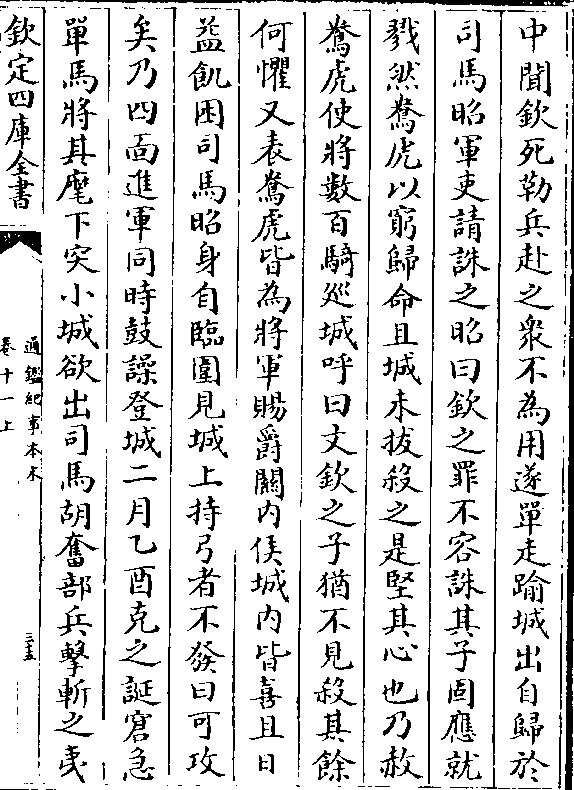 中聞欽死勒兵赴之衆不為用遂單走踰城出自歸於
司馬昭軍吏請誅之昭曰欽之罪不容誅其子固應就
戮然鴦虎以窮歸命且城未拔殺之是堅其心也乃赦
鴦虎使將數百騎廵城呼曰文欽之子猶不見殺其餘
何懼又表鴦虎皆為將軍賜爵關内侯城内皆喜且日
益飢困司馬昭身自臨圍見城上持弓者不發曰可攻
矣乃四面進軍同時鼓譟登城二月乙酉克之誕窘急
單馬將其麾下突小城欲出司馬胡奮部兵擊斬之夷
欽定四庫全書
通鑑紀事本末
卷十一上
三五